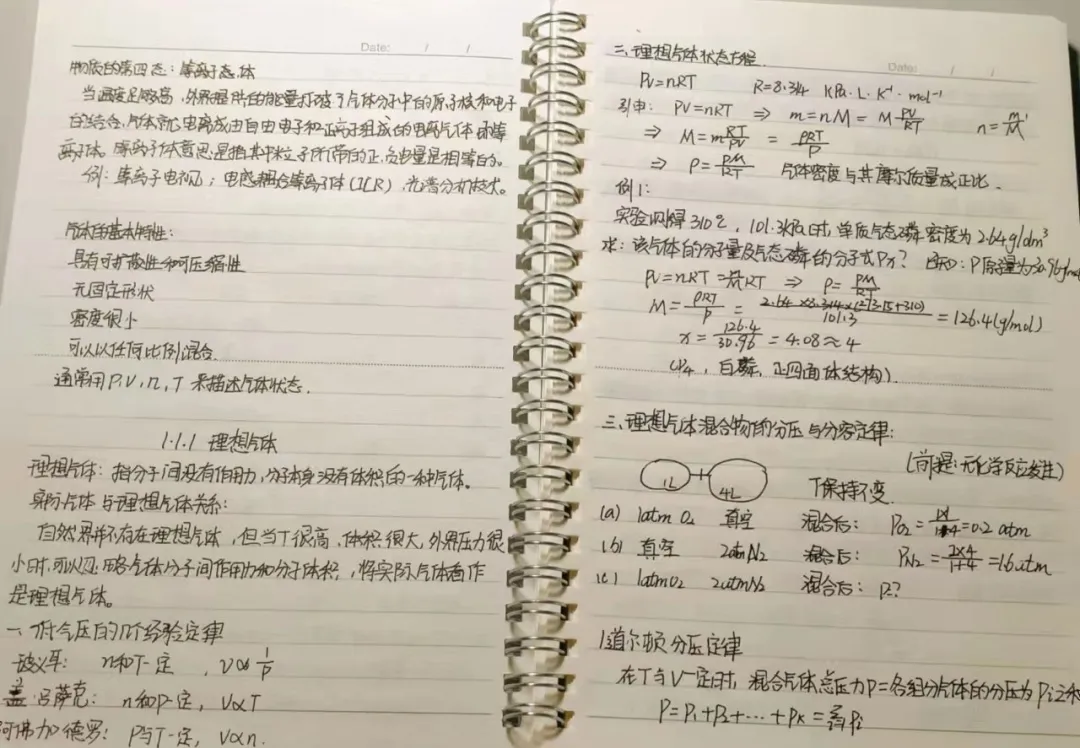 Date: / /
物质的第四态：等离子态体
当温度足够高，外界提供的能量打破了气体分子中的原子核和电子
的结合，气体就电离成由自由电子和正离子组成的电离气体即等
离子体。等离子体意思是指其中粒子所带的正、负电量是相等的。
例：等离子电视；电感耦合等离子体(ICR)，光谱分析技术。
气体的基本特性：
具有可扩散性和可压缩性
无固定形状
密度很小
可以以任何比例混合.
通常用P.V，n，T 来描述气体状态.
1.1.1 理想气体
理想气体：指分子间没有作用力，分子本身没有体积的一种气体。
实际气体与理想气体关系：
自然界并不存在理想气体，但当T很高，体积很大，外界压力很
小时，可以忽略气体分子间作用力和分子体积，将实际气体看作
是理想气体。
一、低气压下的几个经验定律
波义耳： n和T一定 ，V∝1/P
盖·吕萨克： n和P一定，V∝T
阿佛加德罗：P与T一定，V∝n.
二、理想气体状态方程.
Date: / /
PV=nRT R=8.314 KPa·L·K⁻¹·mol⁻¹
引申： PV=nRT ⇒ m=nM=M PV/RT n=m/M
⇒ M=m RT/PV = ρRT/P
⇒ ρ=PM/RT 气体密度与其摩尔质量成正比.
例1：
实验测得310℃，101.3kPa时，单质气态磷密度为2.64g/dm³
求：该气体的分子量及气态磷的分子式Px？ 已知：P原子量为30.96g/mol
PV=nRT=m/M RT ⇒ ρ=PM/RT
M=ρRT/P = 2.64×8.314×(273.15+310)/101.3 = 126.4(g/mol)
x=126.4/30.96=4.08≈4
(P₄，白磷，正四面体结构).
三、理想气体混合物的分压与分容定律：
(前提：无化学反应发生)
1L 4L T保持不变.
(a) 1atm O₂ 真空 混合后： P_O₂=1×1/1+4=0.2 atm
(b) 真空 2atmN₂ 混合后： P_N₂=2×4/1+4=1.6atm
(c) 1atmO₂ 2atmN₂ 混合后：P？
1道尔顿分压定律
在T与V一定时，混合气体总压力P=各组分气体的分压为Pi之和
P=P₁+P₂+…+Pk=ΣPi